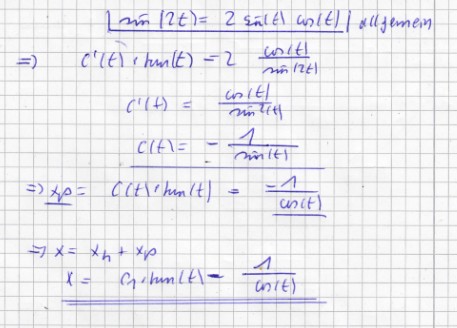 sin(2t) = 2 sin(t) cos(t) | allgemein
=> C'(t) · tan(t) = 2 cos(t)/sin(2t)
C'(t) = cos(t)/sin²(t)
C(t) = - 1/sin(t)
=> xp = C(t) · tan(t) = -1/cos(t)
=> x = xh + xp
x = C1 · tan(t) - 1/cos(t)